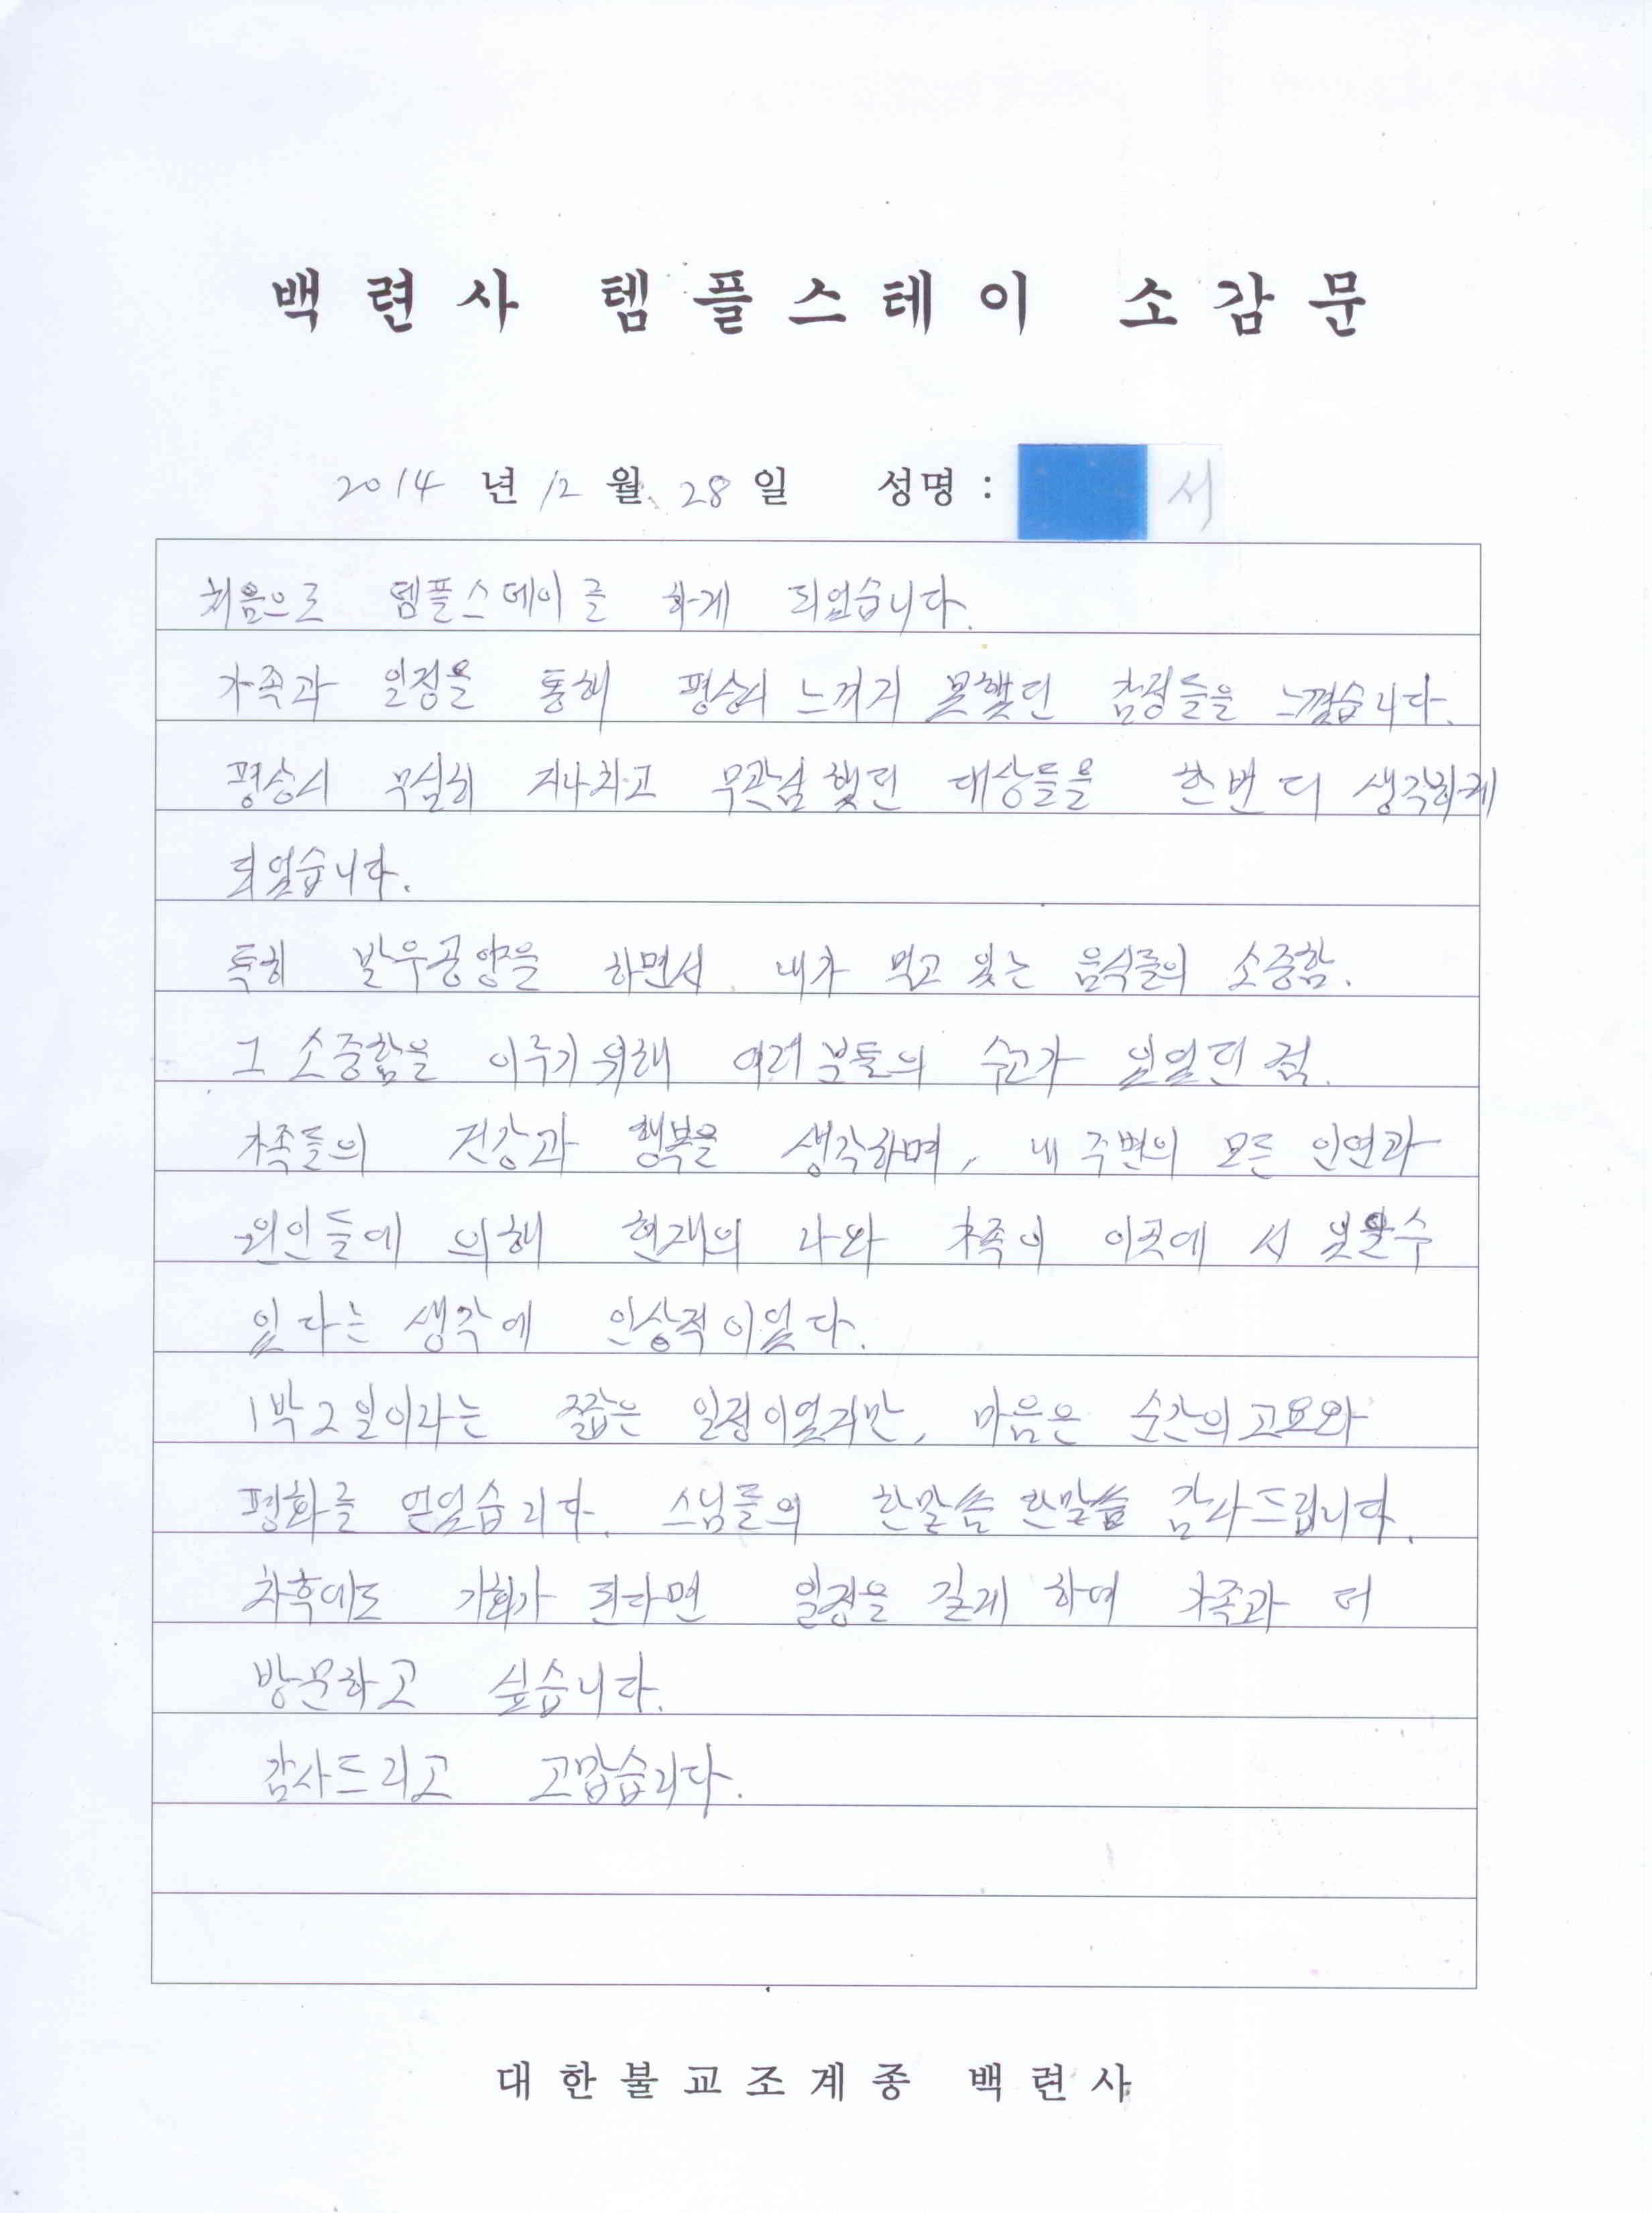 백련사 템플스테이 소감문
2014 년 12 월 28 일 성명 : 서
처음으로 템플스테이를 하게 되었습니다.
가족과 일정을 통해 평상시 느끼지 못했던 감정들을 느꼈습니다.
평상시 무심히 지나치고 무관심 했던 대상들을 한번 더 생각하게
되었습니다.
특히 발우공양을 하면서 내가 먹고 있는 음식들의 소중함.
그 소중함을 이루기 위해 여러 분들의 수고가 있었던 점.
가족들의 건강과 행복을 생각하며, 내 주변의 모든 인연과
원인들에 의해 현재의 나와 가족이 이곳에 서 있을수
있다는 생각에 인상적이었다.
1박2일이라는 짧은 일정이었지만, 마음은 순간의 고요와
평화를 얻었습니다. 스님들의 한말씀 한말씀 감사드립니다.
차후에도 기회가 된다면 일정을 길게 하여 가족과 더
방문하고 싶습니다.
감사드리고 고맙습니다.
대한불교조계종 백련사